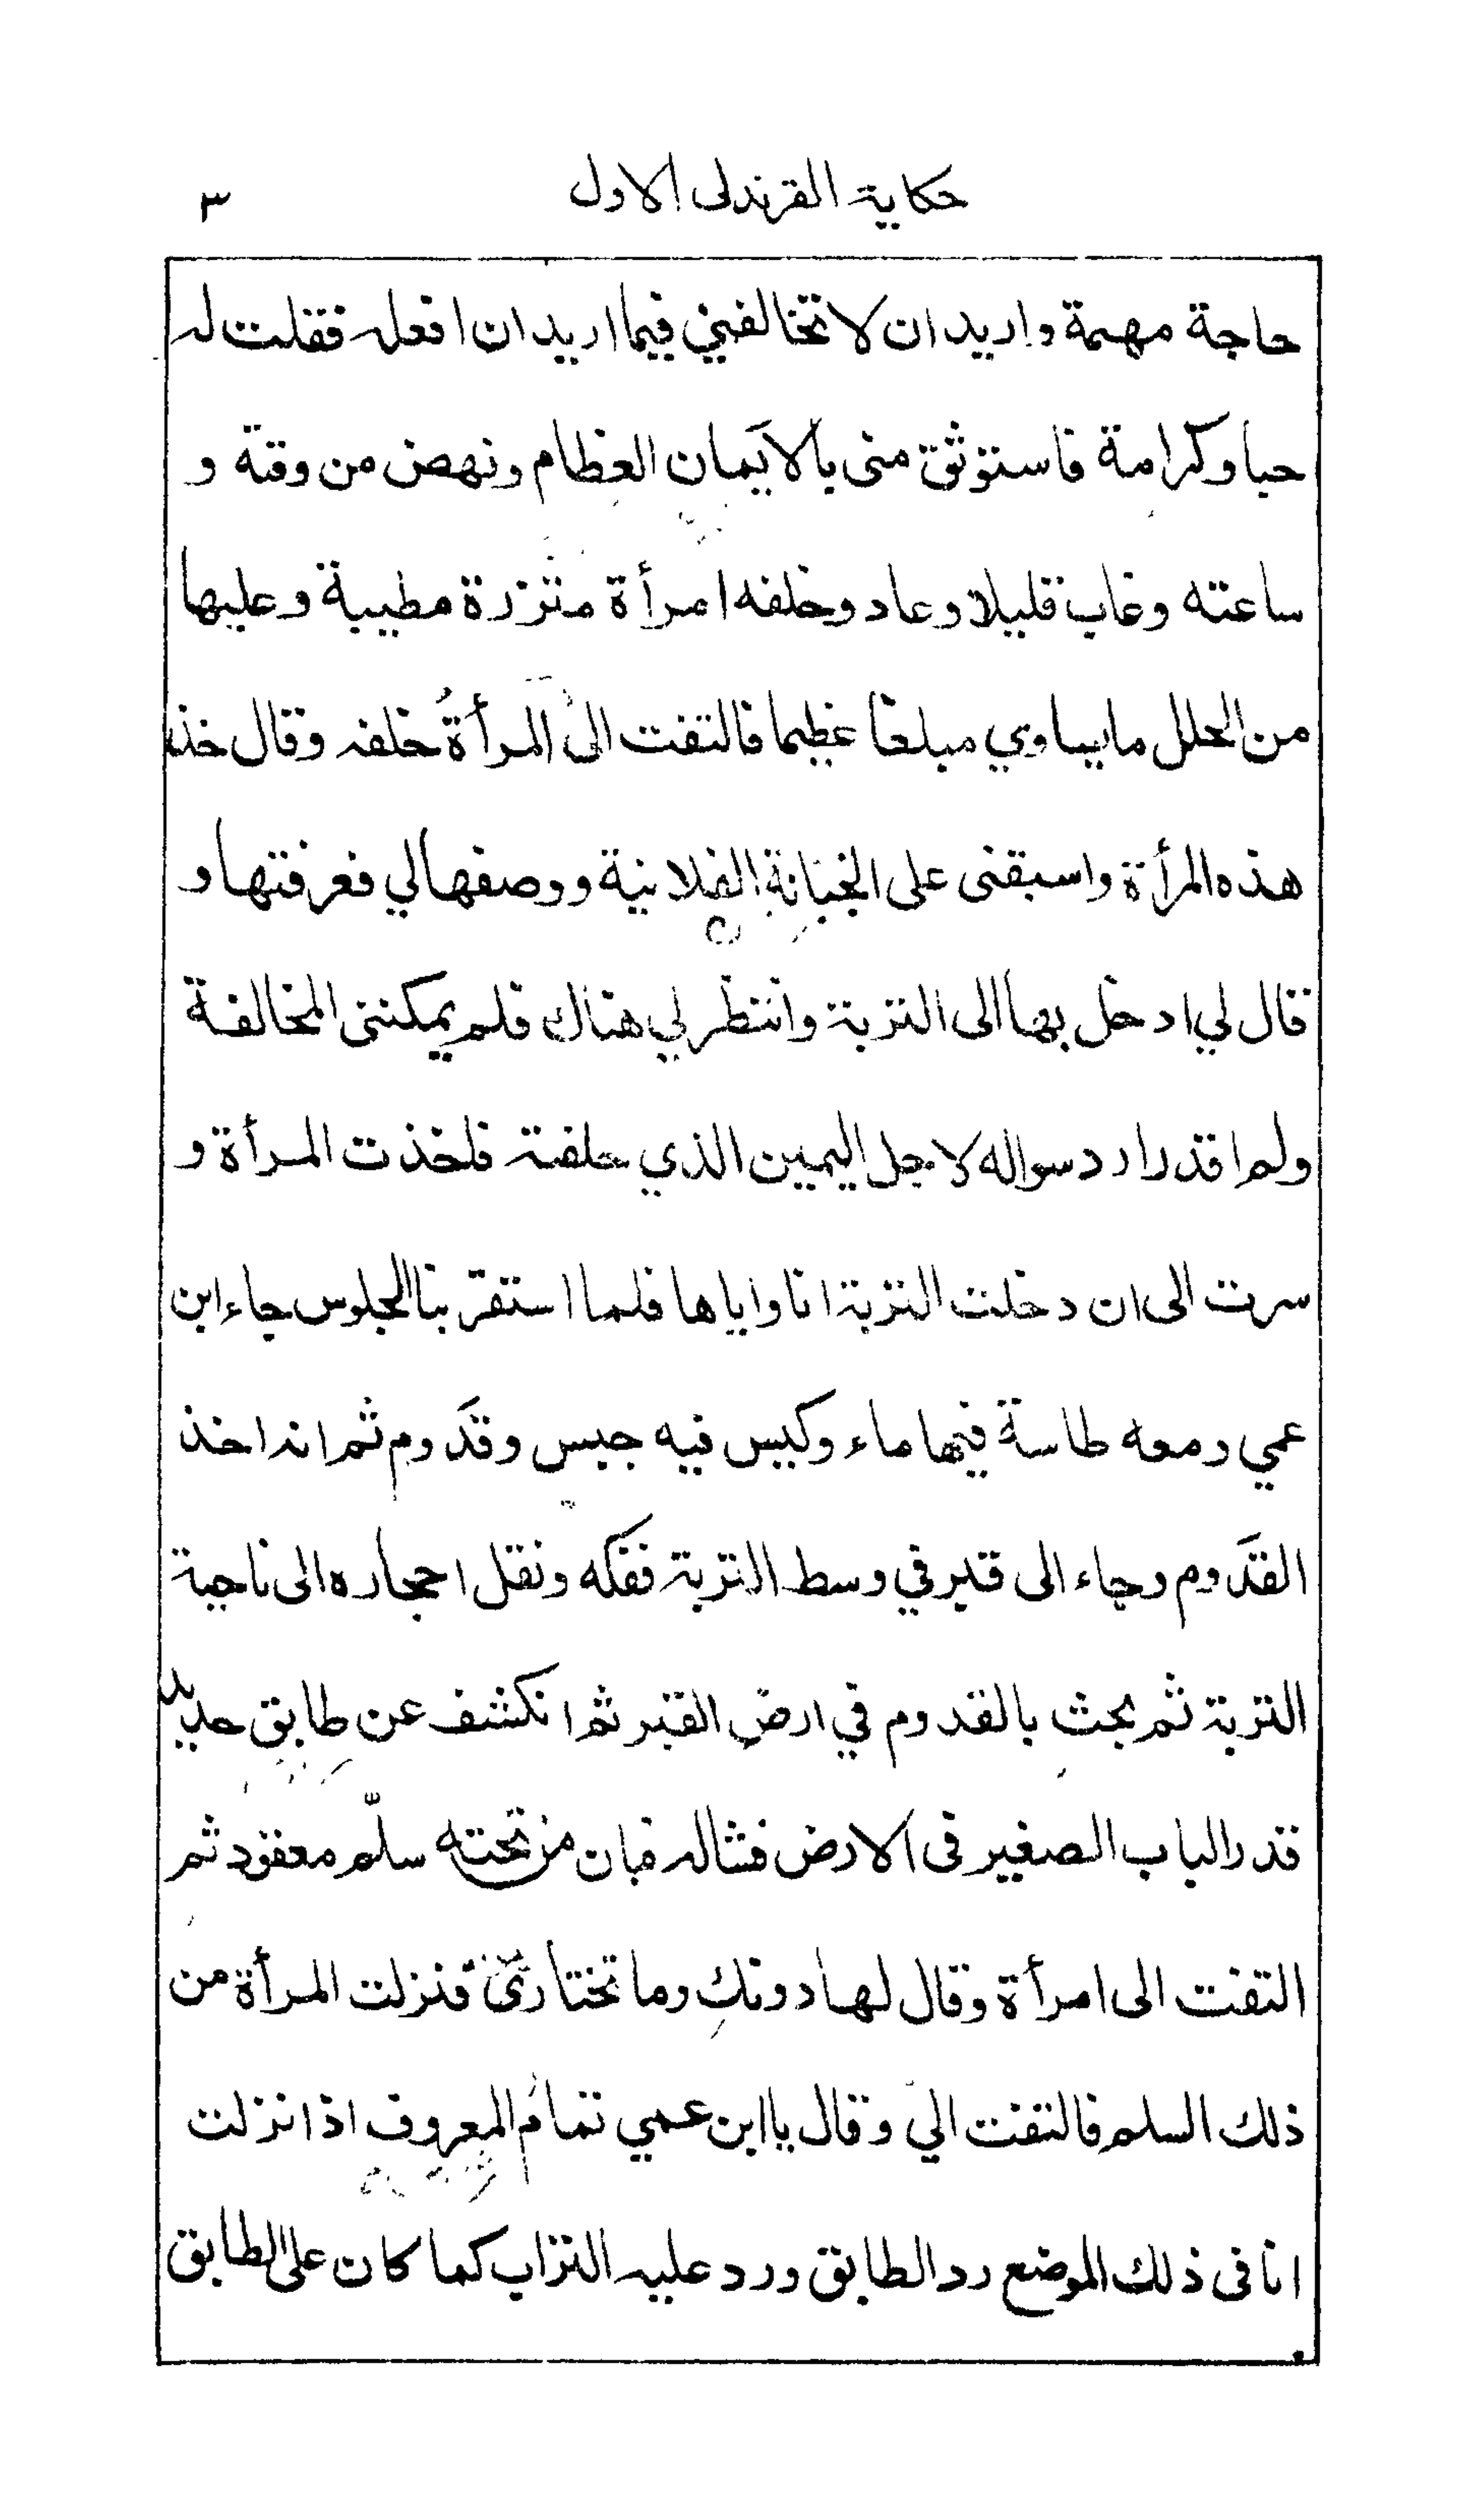 حكاية القرندلى الاول ٣
حاجة مهمة واريد ان لا تخالفني فيما اريد ان افعله فقلت له
حبا وكرامة فاستوثق منى بالاَيمان العِظام ونهض من وقته و
ساعته وغاب قليلا وعاد وخلفه امرأة متزرة مطيبة وعليها
من الحلل ما يساوي مبلغا عظيما فالتفت الى المرأةُ خلفه وقال خذ
هذه المرأة واسبقنى على الجبانة الفلانية ووصفها لي فعرفتها و
قال لي ادخل بها الى التربة وانتظر لي هناك فلم يمكننى المخالفة
ولم اقدر ارد سواله لاجل اليمين الذي حلفته فاخذت المرأة و
سرت الى ان دخلت التربة انا واياها فلما استقر بنا الجلوس جاء ابن
عمي ومعه طاسة فيها ماء وكيس فيه جبس وقدَوم ثم انه اخذ
القدَوم وجاء الى قبر في وسط التربة ففكه ونقل احجاره الى ناحية
التربة ثم بحث بالقدوم في ارض القبر ثم انكشف عن طابِق حديد
قدر الباب الصغير فى الارض فشاله فبان من تحته سلّم معقود ثم
التفت الى امرأة وقال لها دونكِ وما تختاري فنزلت المرأة من
ذلك السلم فالتفت الي وقال يا ابن عمي تمام المعروف اذا نزلت
انا فى ذلك الموضع رد الطابق ورد عليه التراب كما كان على الطابق